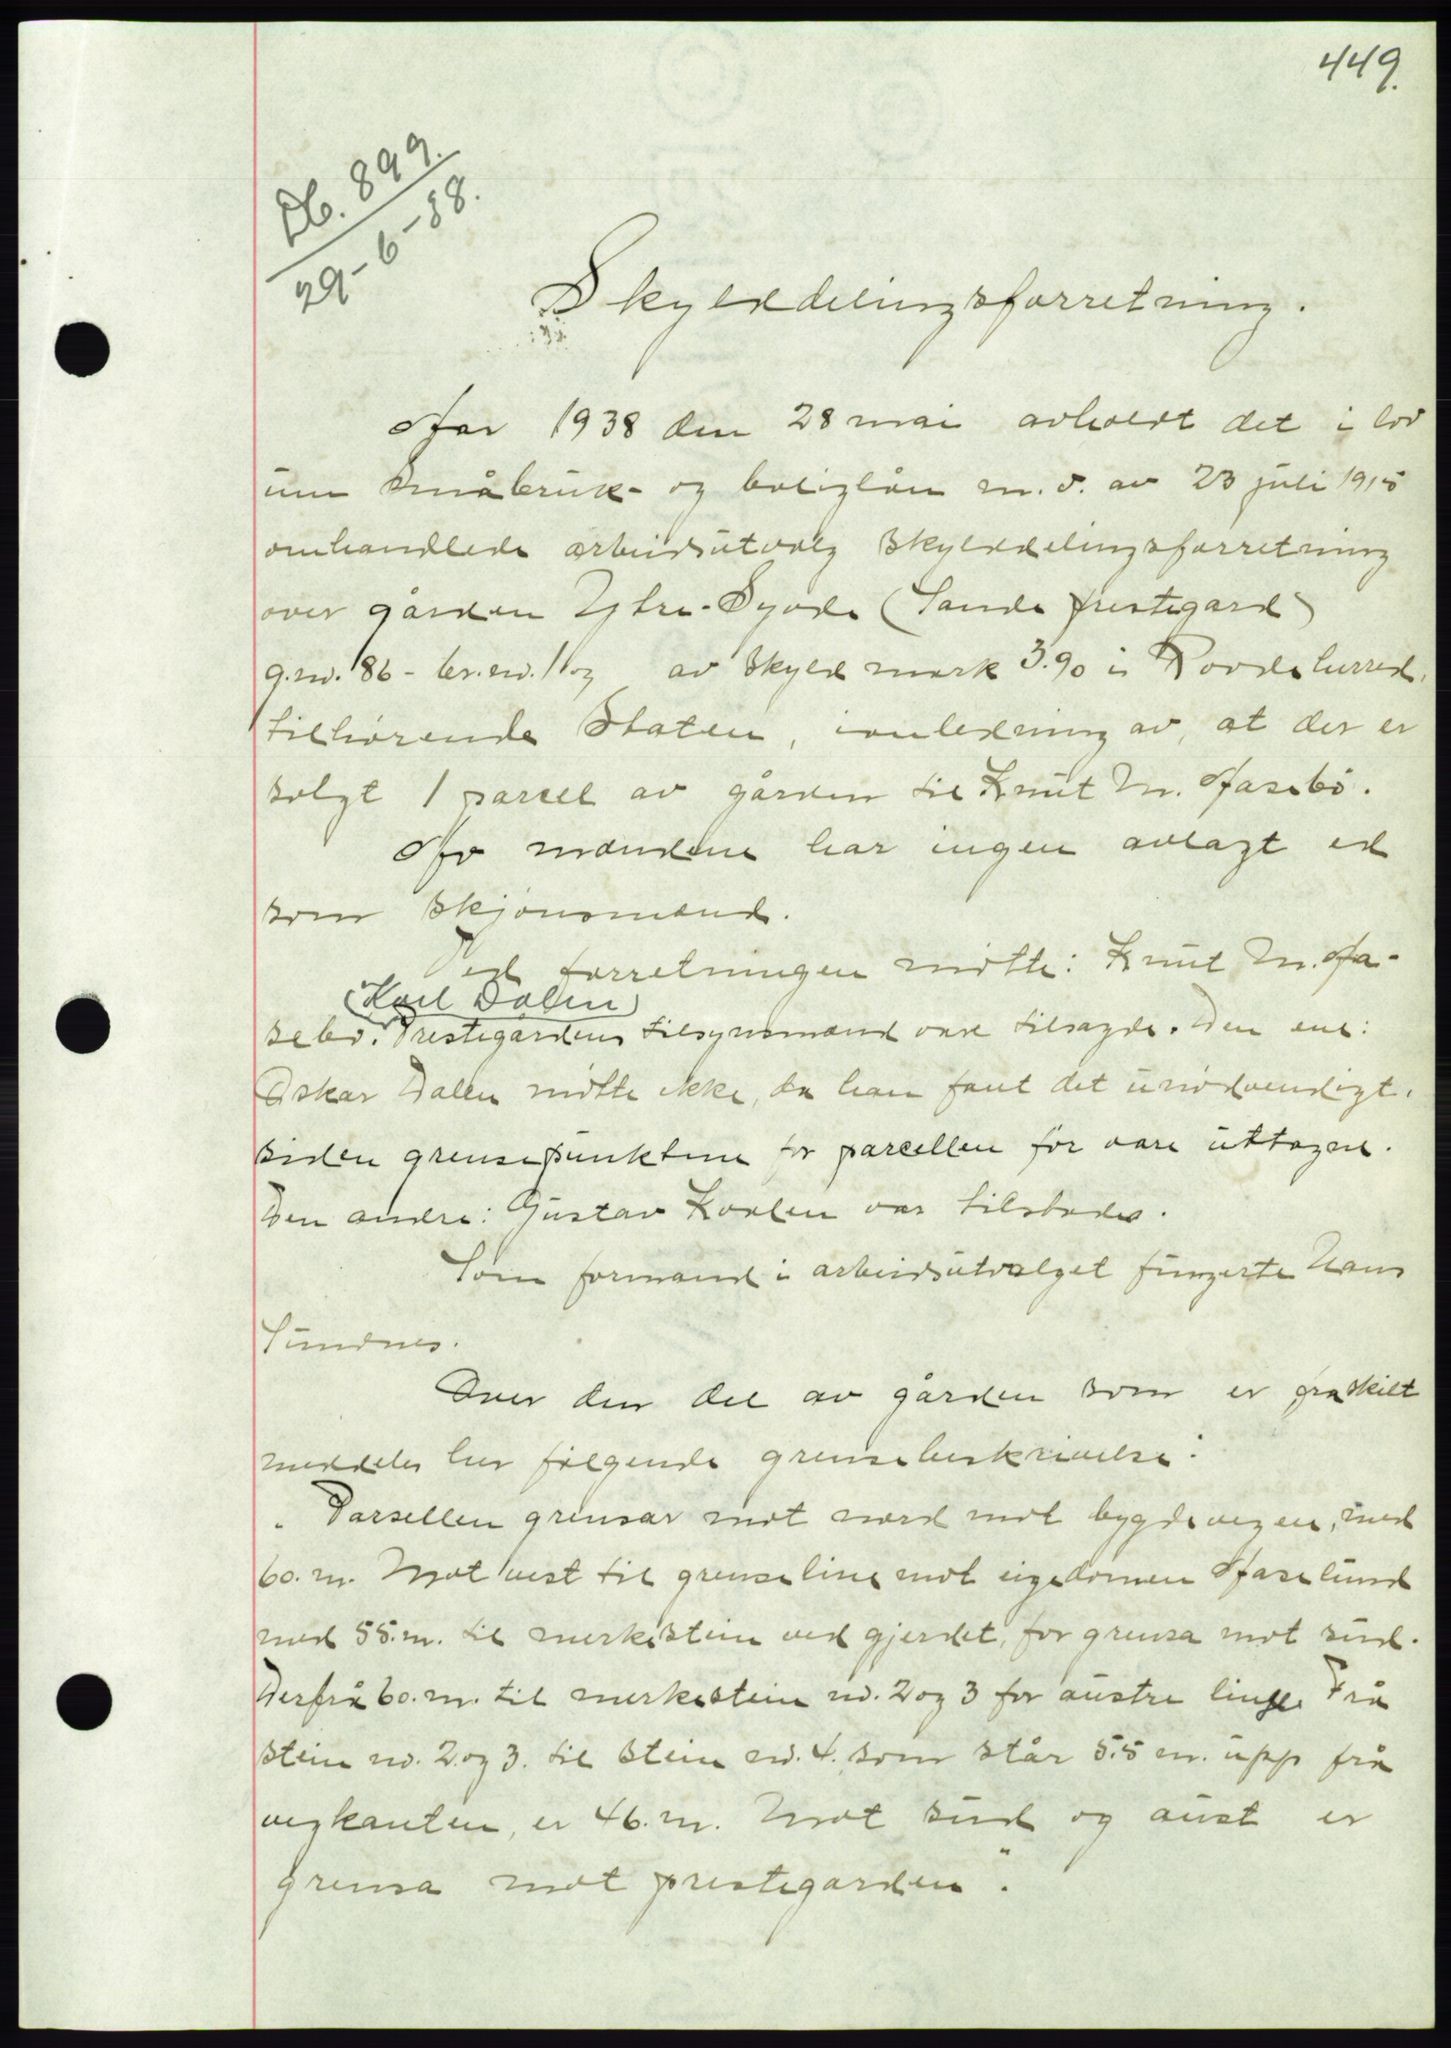 449.
Db. 899.
29-6-38.
Skylddelingsforretning.
Aar 1938 den 28 mai avholdt det i lov
um småbruk- og boliglån m. v. av 23 juli 1915
omhandlede arbeidsutvalg skylddelingsforretning
over gården Ytre-Syvde (Sande prestegard)
g.nr. 86 - br.nr. 1 og av skyld mark 3.90 i Rovde herred,
tilhörende Staten, i anledning av, at der er
solgt 1 parcel av gården til Knut M. Aasebö.
Av mændene har ingen avlagt ed
som skjönsmænd.
Ved forretningen mötte: Knut M. Aa-
(Karl Dalen)
sebö. Prestegårdens tilsynsmænd vare tilsagde. Den ene:
Oskar Dalen mötte ikke, da han fant det unödvendigt,
siden grensepunktene for parcellen för vare uttagne.
Den andre: Gustav Kvalen var tilstede.
Som formand i arbeidsutvalget fungerte Hans
Sundnes.
Over den del av gården som er fraskilt
meddeles her fölgende grensebeskrivelse:
"Parsellen grensar mot nord mot bygdevegen, med
60. m. Mot vest til grenseline mot eigedomen Aaselund
med 55. m. til merkestein ved gjerdet, for grensa mot sud.
Derfrå 60. m. til merkestein nr. 2 og 3 for austre line. Frå
stein nr. 2. og 3. til stein nr. 4. som står 5.5 m. upp frå
vegkanten, er 46. m. Mot sud og aust er
grensa mot prestegarden".